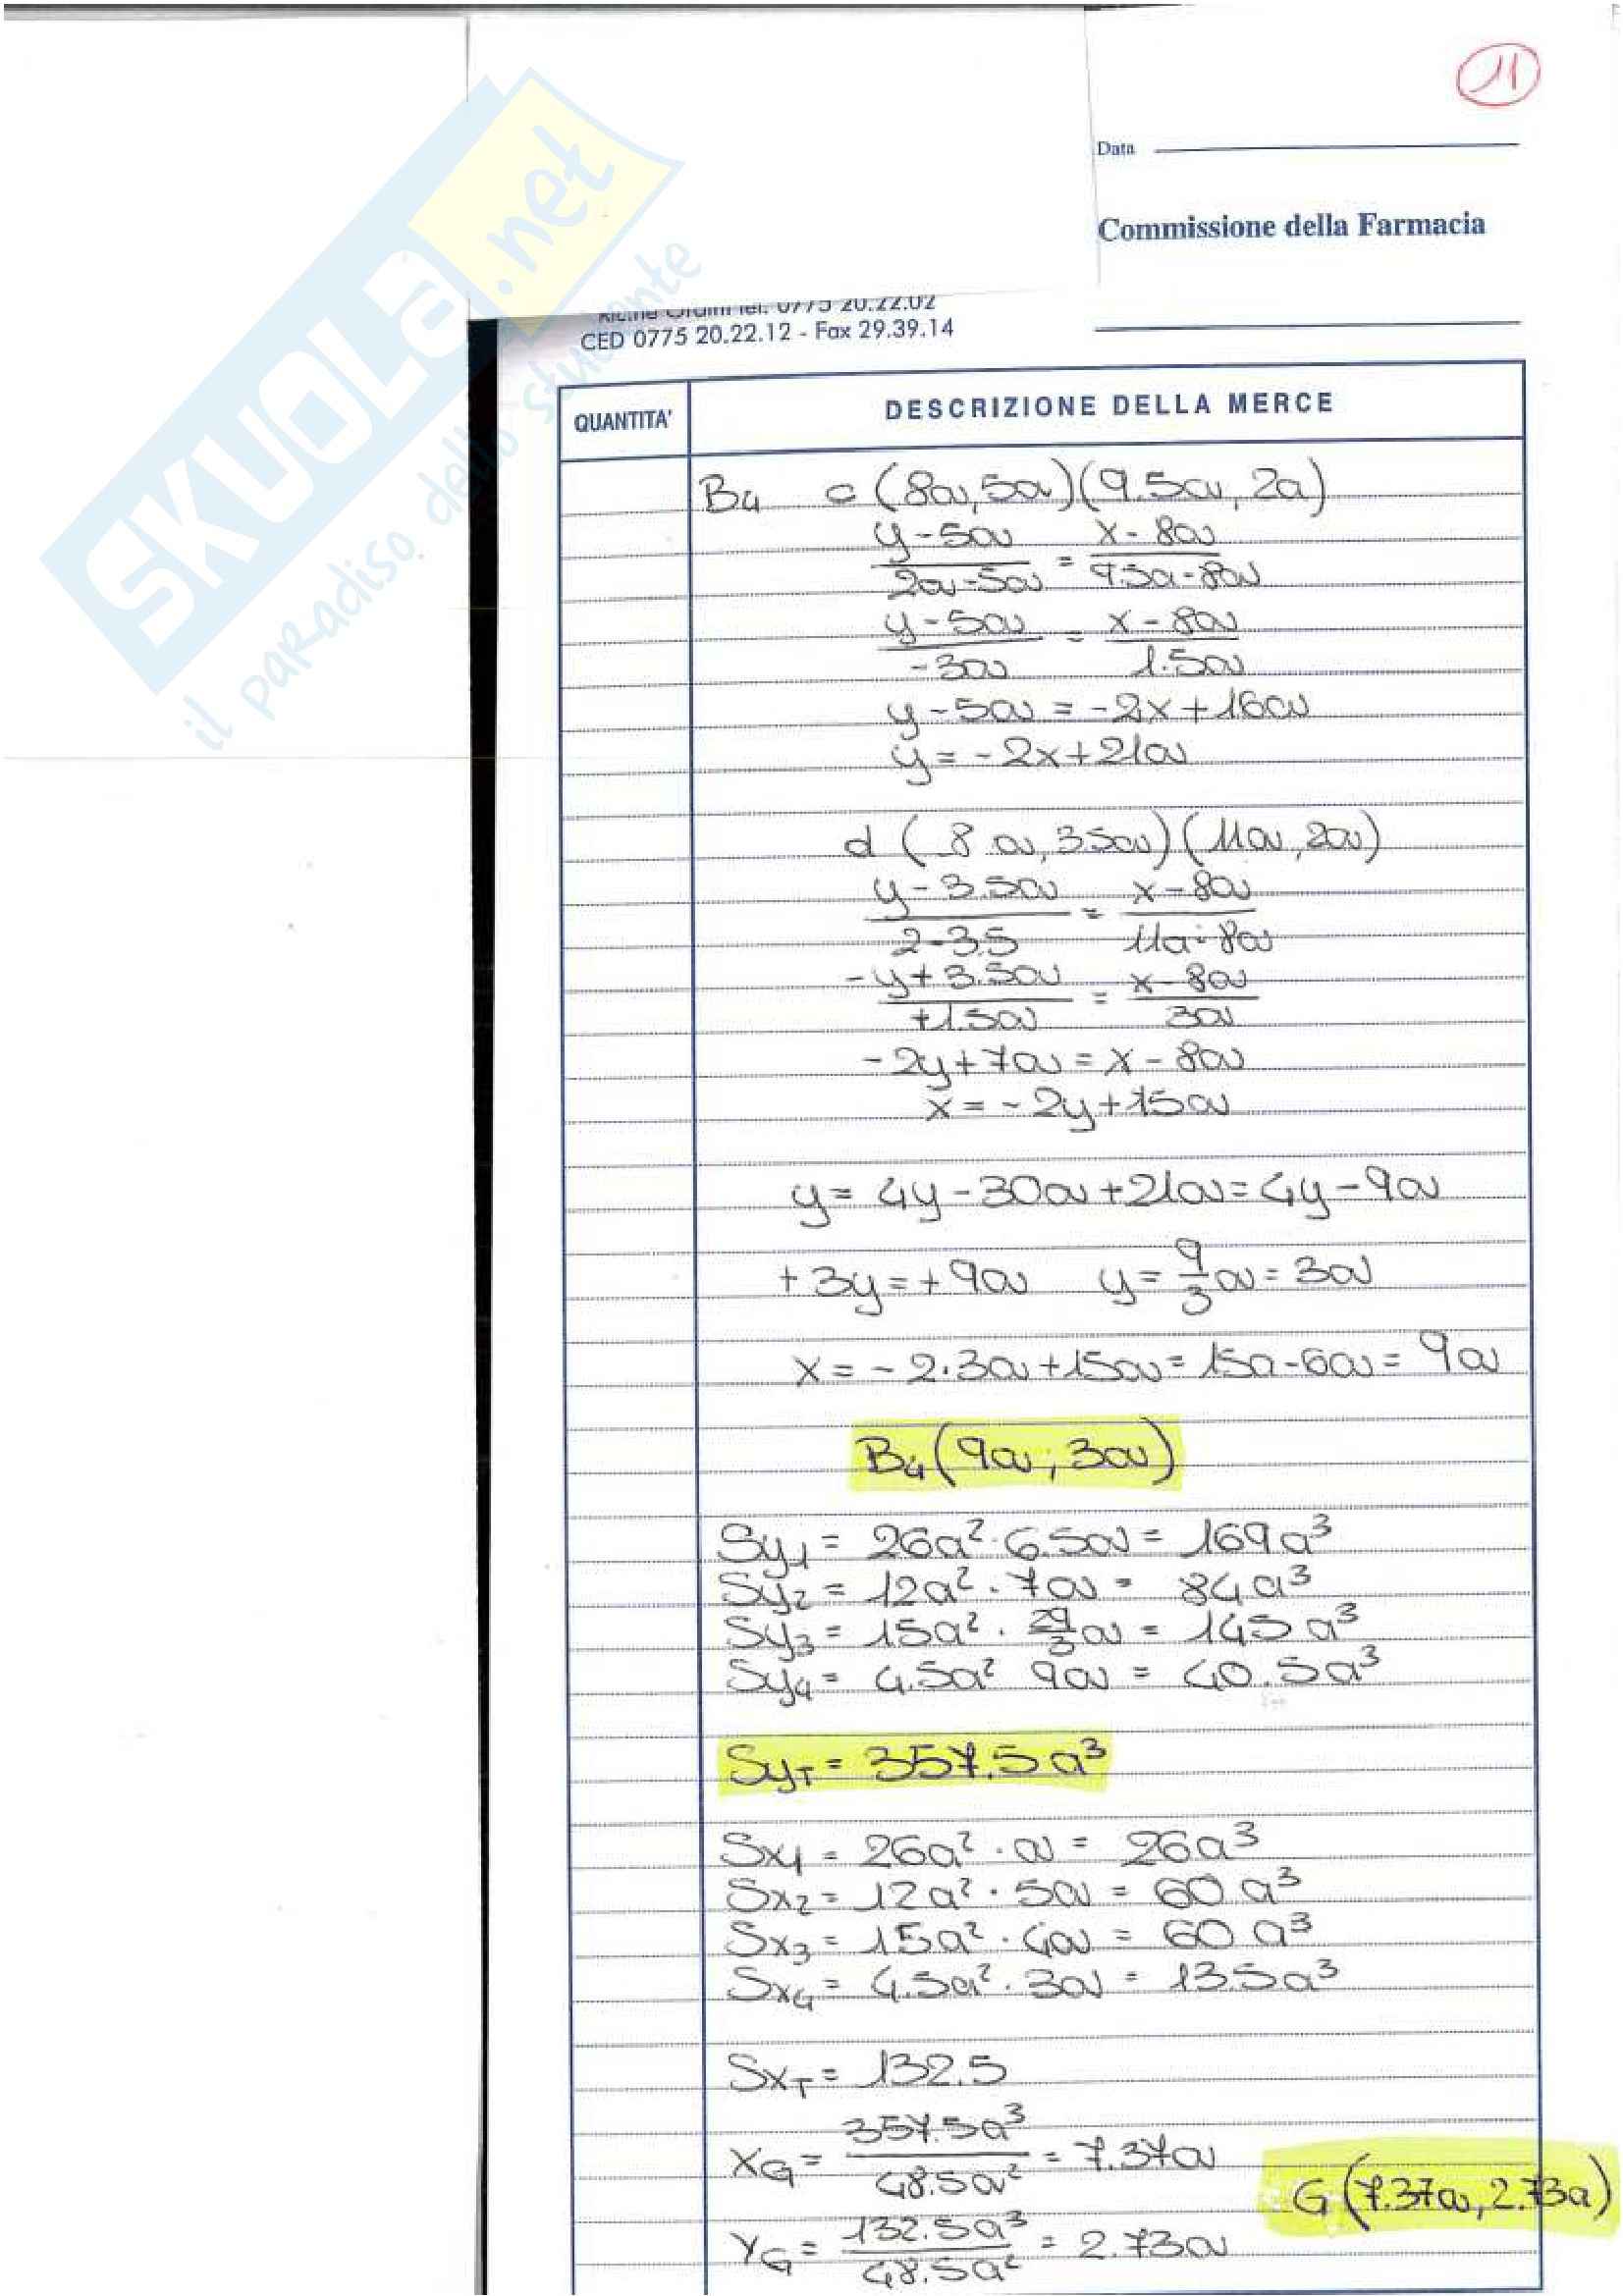 11
Data
Commissione della Farmacia
SKUOLA.net
il paradiso dello studente
CED 0775 20.22.12 - Fax 29.39.14
QUANTITA' DESCRIZIONE DELLA MERCE
B4 c (8a, 5a) (9.5a, 2a)
y-5a / 2a-5a = x-8a / 9.5a-8a
y-5a / -3a = x-8a / 1.5a
y-5a = -2x+16a
y = -2x+21a
d (8a, 3.5a) (11a, 2a)
y-3.5a / 2-3.5 = x-8a / 11a-8a
-y+3.5a / +1.5a = x-8a / 3a
-2y+7a = x-8a
x = -2y+15a
y = 4y-30a+21a = 4y-9a
+3y = +9a y = 9/3 a = 3a
x = -2·3a+15a = 15a-6a = 9a
B4 (9a; 3a)
Sy1 = 26a²·6.5a = 169a³
Sy2 = 12a²·7a = 84a³
Sy3 = 15a²·29/3 a = 145a³
Sy4 = 4.5a² 9a = 40.5a³
SyT = 357.5a³
Sx1 = 26a²·a = 26a³
Sx2 = 12a²·5a = 60a³
Sx3 = 15a²·4a = 60a³
Sx4 = 4.5a²·3a = 13.5a³
SxT = 132.5
XG = 357.5a³ / 48.5a² = 7.37a
G (7.37a, 2.73a)
YG = 132.5a³ / 48.5a² = 2.73a